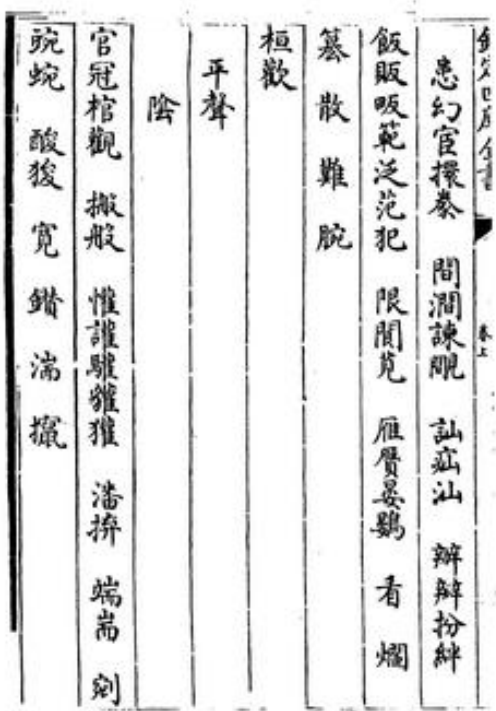 欽定四庫全書 卷上
患幻宦擐豢 間澗諫覵 訕疝汕 辦辧扮絆
飯販畈範泛范犯 限閒莧 雁贗晏鷃 看 爛
篡 散 難 腕
桓歡
平聲
陰
官冠棺觀 搬般 懽讙驩貛獾 潘拚 端耑 剜
豌蜿 酸狻 寬 鑽 湍 攛